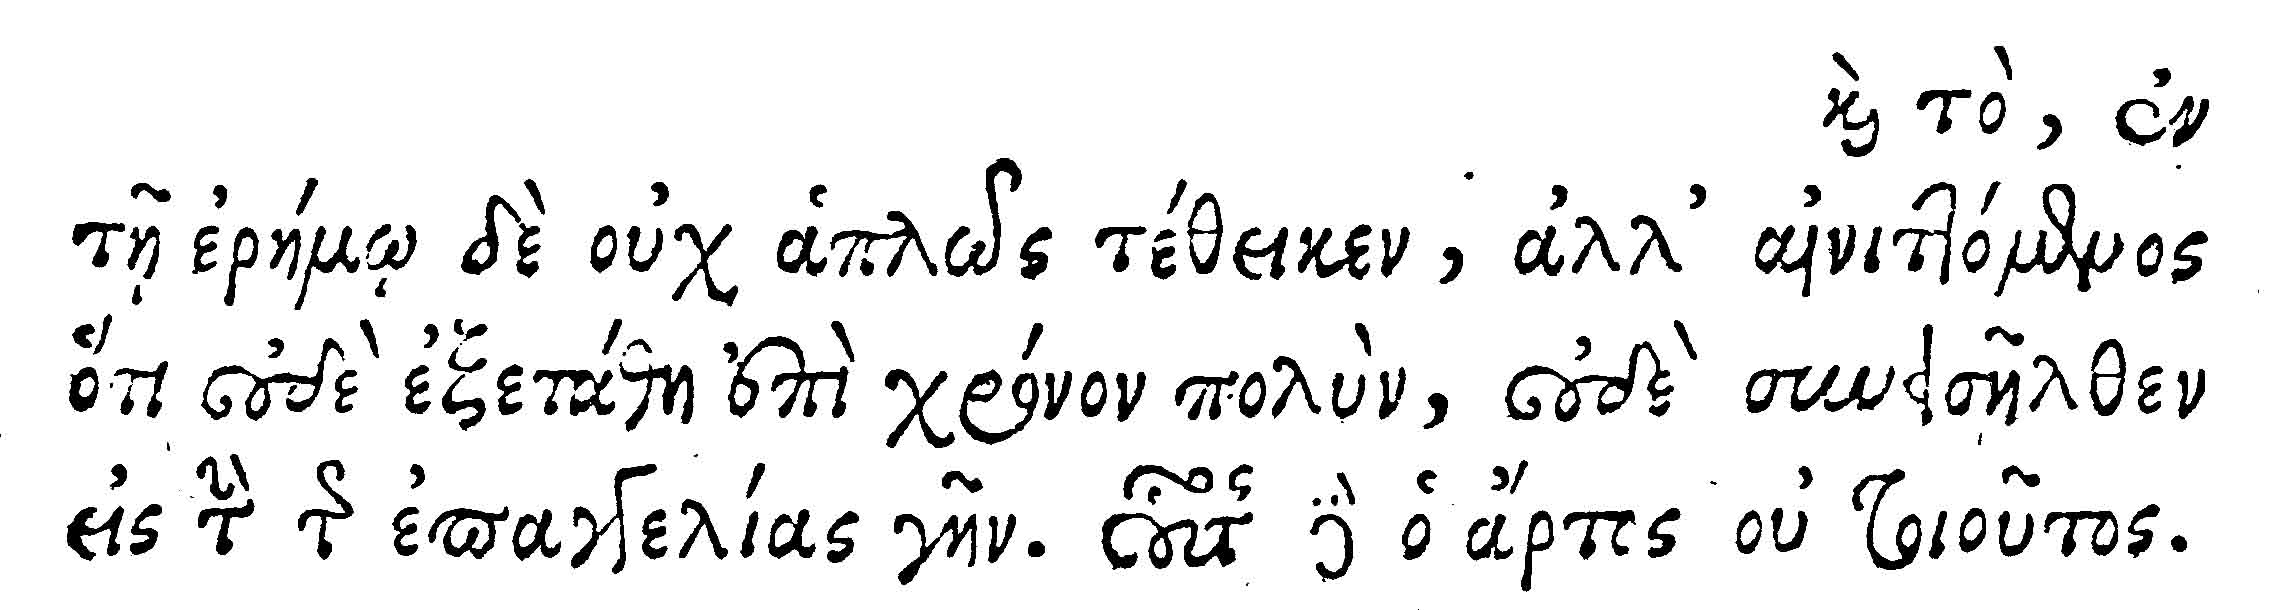 καὶ τὸ, ἐν
τῇ ἐρήμῳ δὲ οὐχ ἁπλῶς τέθεικεν, ἀλλ' αἰνιττόμενος
ὅτι οὐδὲ ἐξετάθη ἐπὶ χρόνον πολὺν, οὐδὲ συνεισῆλθεν
εἰς τὴν τῆς ἐπαγγελίας γῆν. οὗτος δὲ ὁ ἄρτος οὐ τοιοῦτος.